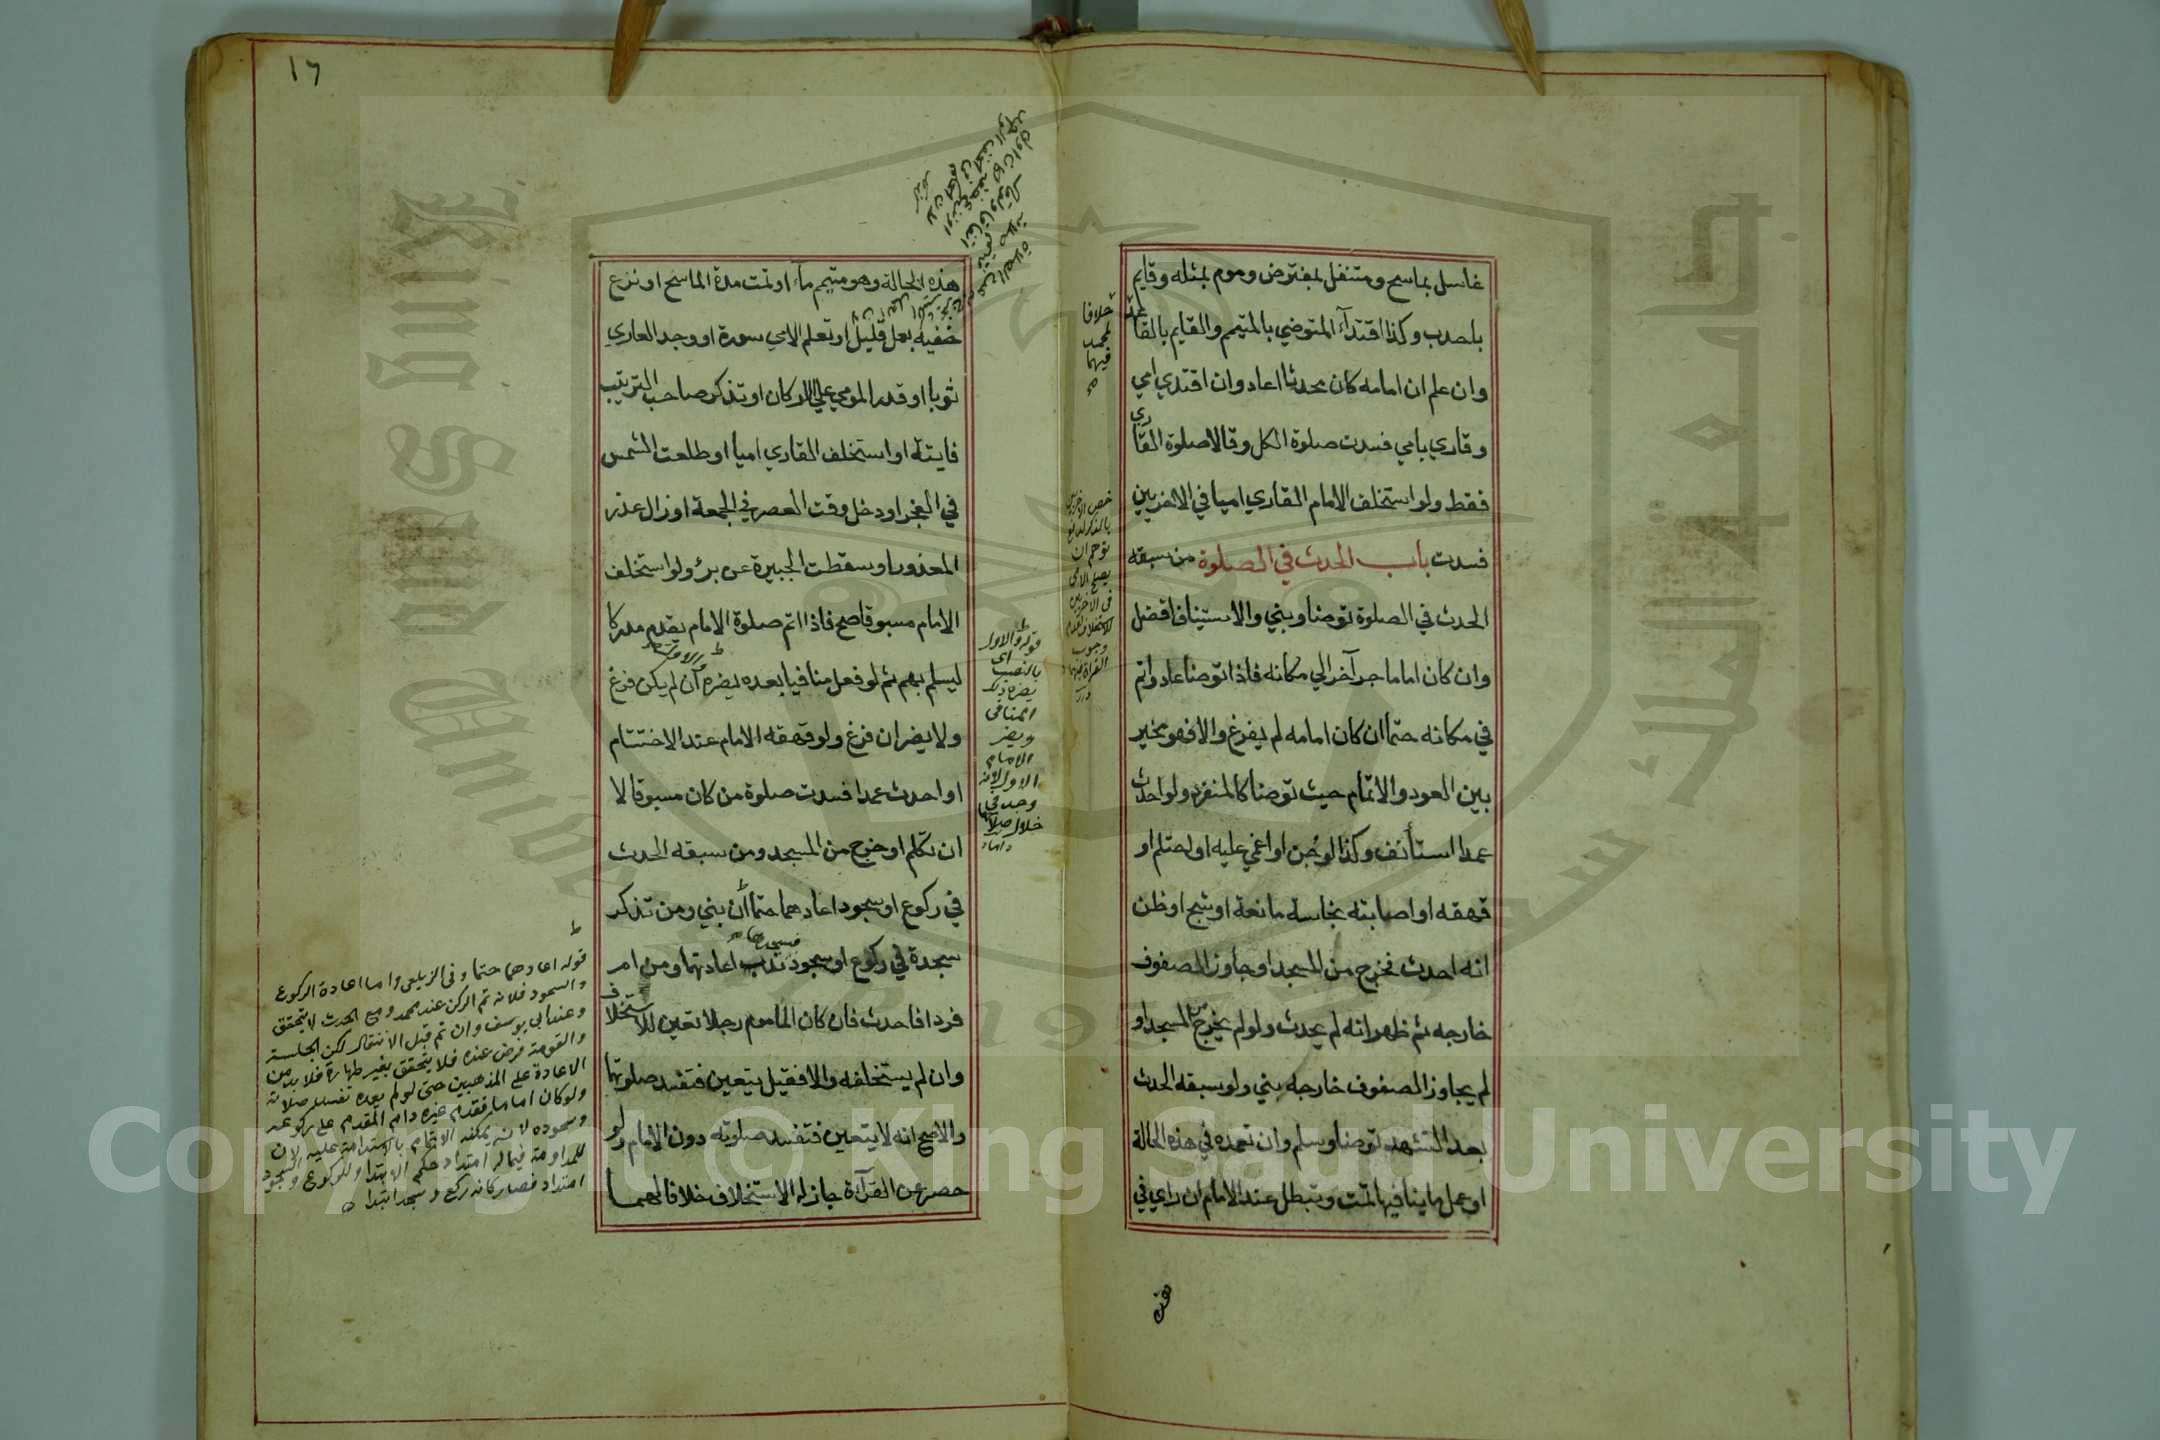 غاسل بماسح ومتنفل بمفترض وموم بمثله وقايم
باحدب وكذا اقتدآء المتوضي بالمتيم والقايم بالقاعد
وان علم ان امامه كان محدثا اعاد وان اقتدي امي
وقاري بامي فسدت صلوة الكل وقالا صلوة القاري
فقط ولو استخلف الامام القاري اميا في الاخريين
فسدت باب الحدث في الصلوة من سبقه
الحدث في الصلوة توضا وبني والاستيناف افضل
وان كان اماما جر آخر الي مكانه فاذا توضا عاد واتم
في مكانه حتما ان كان امامه لم يفرغ والا فهو مخير
بين العود والاتمام حيث توضا كالمنفرد ولو احدث
عمدا استأنف وكذا لو جن او اغمي عليه او احتلم او
قهقه او اصابته نجاسة مانعة او شج او ظن
انه احدث فخرج من المسجد او جاوز الصفوف
خارجه ثم ظهر انه لم يحدث ولو لم يخرج من المسجد او
لم يجاوز الصفوف خارجه بني ولو سبقه الحدث
بعد التشهد توضا وسلم وان تعمده في هذه الحالة
او عمل ما ينافيها تمت وتبطل عند الامام ان راي في
هذه
خلافا
لمحمد
فيهما
خص الاخريين
بالذكر لدفع
توهم ان
يصلح الامي
في الاخريين
وجوب
القراة فيهما
درر
١٦
هذه الحالة وهو متيمم مآء او تمت مدة الماسح او نزع
خفيه بعمل قليل او تعلم الامي سورة او وجد العاري
ثوبا او قدر المومي علي الاركان او تذكر صاحب الترتيب
فايتة او استخلف القاري اميا او طلعت الشمس
في الفجر او دخل وقت العصر في الجمعة او زال عذر
المعذور او سقطت الجبيرة عن برؤ ولو استخلف
الامام مسبوقا صح فاذا اتم صلوة الامام يقدم مدركا
ليسلم بهم ثم لو فعل منافيا بعده يضره ان لم يكن فرغ
ولا يضر ان فرغ ولو قهقه الامام عند الاختتام
او احدث عمدا فسدت صلوة من كان مسبوقا لا
ان تكلم او خرج من المسجد ومن سبقه الحدث
في ركوع او سجود اعادهما حتما ان بني ومن تذكر
سجدة في ركوع او سجود فسجدها ندب اعادتهما ومن ام
فردا فاحدث فان كان الماموم رجلا تعين للاستخلاف
وان لم يستخلفه والا فقيل يتعين فتفسد صلوتهما
والاصح انه لا يتعين فتفسد صلوته دون الامام ولو
حصر عن القرآءة جاز له الاستخلاف خلافا لهما
قوله والاول
بالنصب اي
يضره ذلك
المنافي
ويضر
الامام
الاول لانه
وجد في
خلال صلاتهما
داماد
قوله اعادهما حتما وفي الزيلعي واما اعادة الركوع
والسجود فلانه تم الركن عند محمد ومع الحدث لا يتحقق
وعند ابي يوسف وان تم قبل الانتقال لكن الجلسة
والقومة فرض عنده فلا يتحقق بغير طهارة فلا بد من
الاعادة على المذهبين حتى لو لم يعده تفسد صلاته
ولو كان اماما فقدم غيره دام المقدم على ركوعه
وسجوده لانه يمكنه الاتمام بالاستدامة عليه لان
للمداومة فيما له امتداد حكم الابتداء وللركوع والسجود
امتداد فصار كانه ركع وسجد ابتداء
Copyright © King Saud University